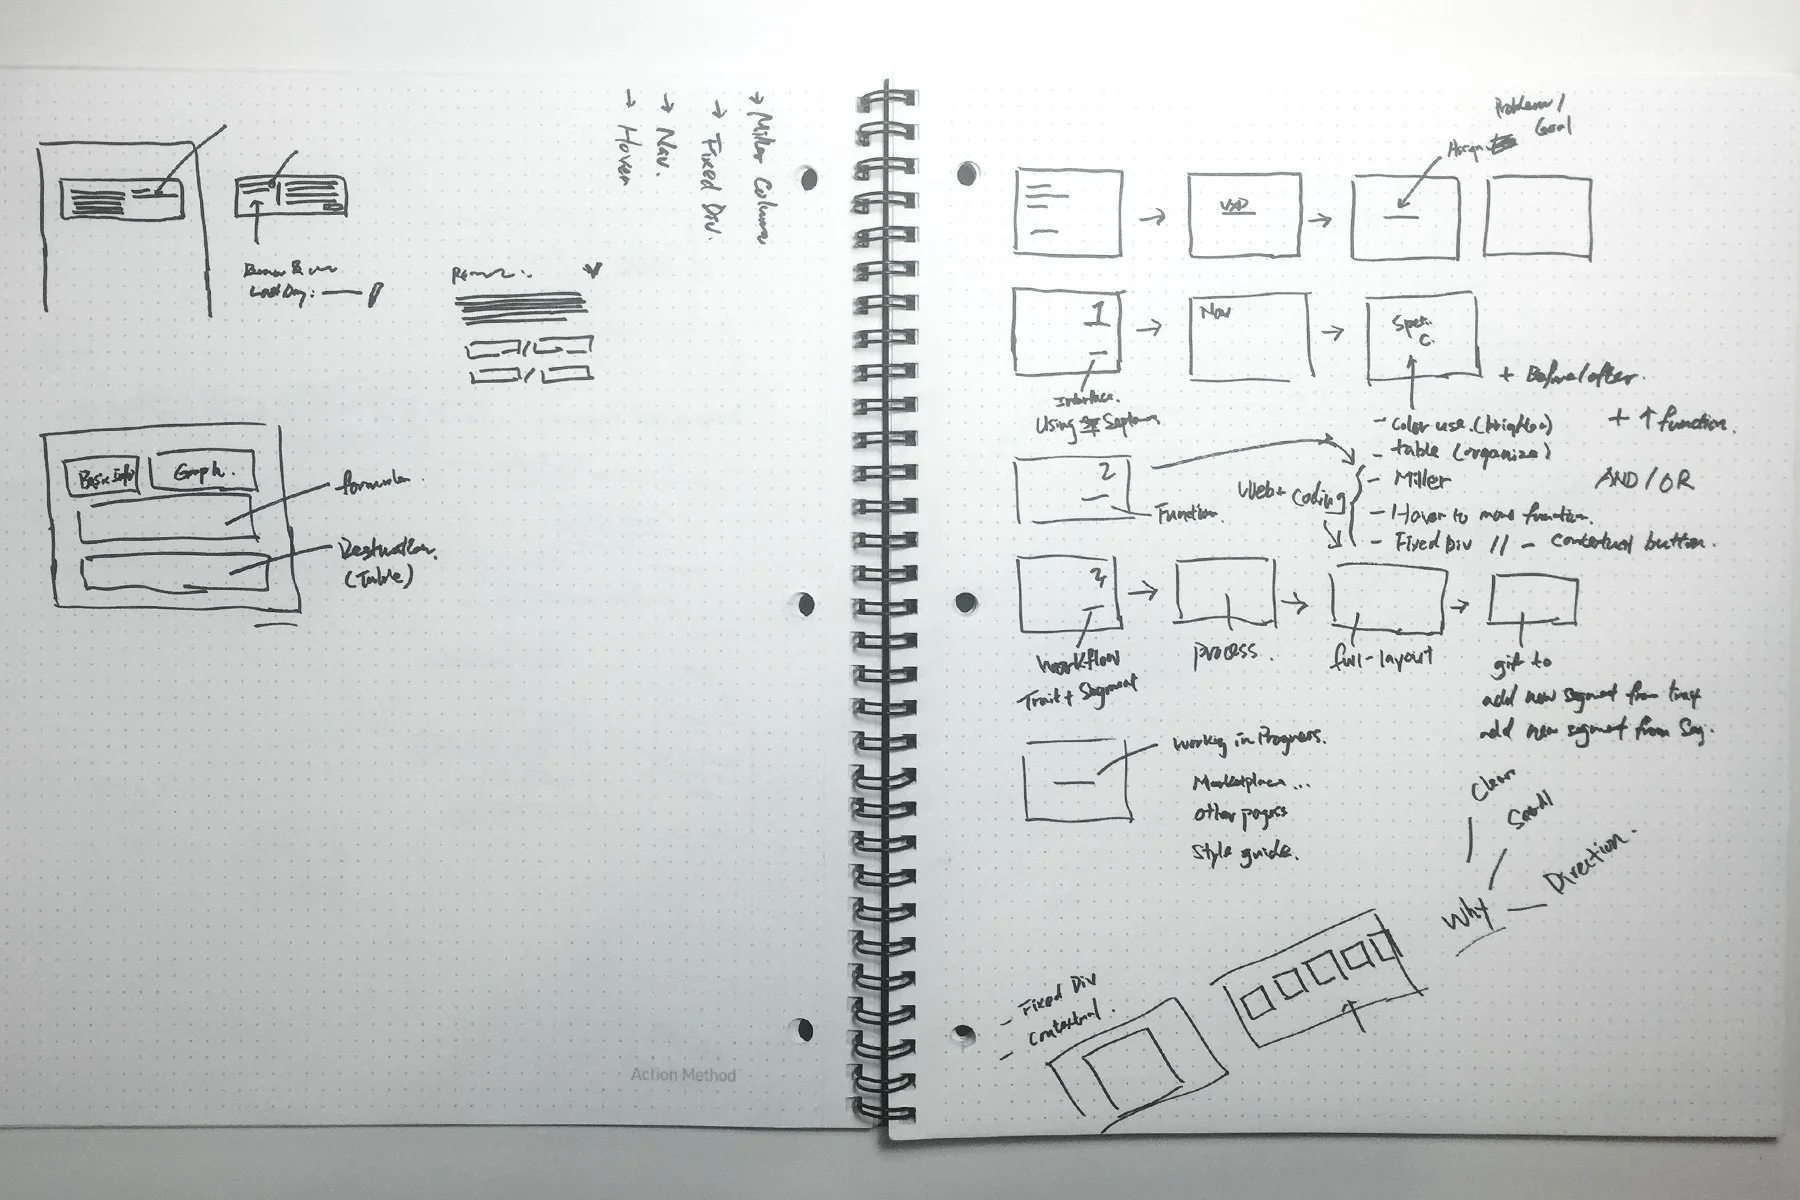 → Miller Column
→ Fixed Div.
→ Nav.
→ Hover
Last Day:
Basic Info
Graph.
formular.
Destination.
(Table)
Action Method
Problem /
Goal
Assign
VXD
1
Interface.
Using
Nav
Speci.
c.
+ Before/after.
+ ↑ function.
- color use.
- table (organize)
- Miller
- Hover to more function.
- Fixed Div // - contextual button.
AND / OR
Web + Coding
2
Function.
3
workflow
Trait + Segment
process.
full-layout
gif to
add new segment from trait
add new segment from Seg.
working in Progress.
Marketplace ...
other pages
style guide.
Clear
Small
Why
Direction.
- Fixed Div
- Contextual.